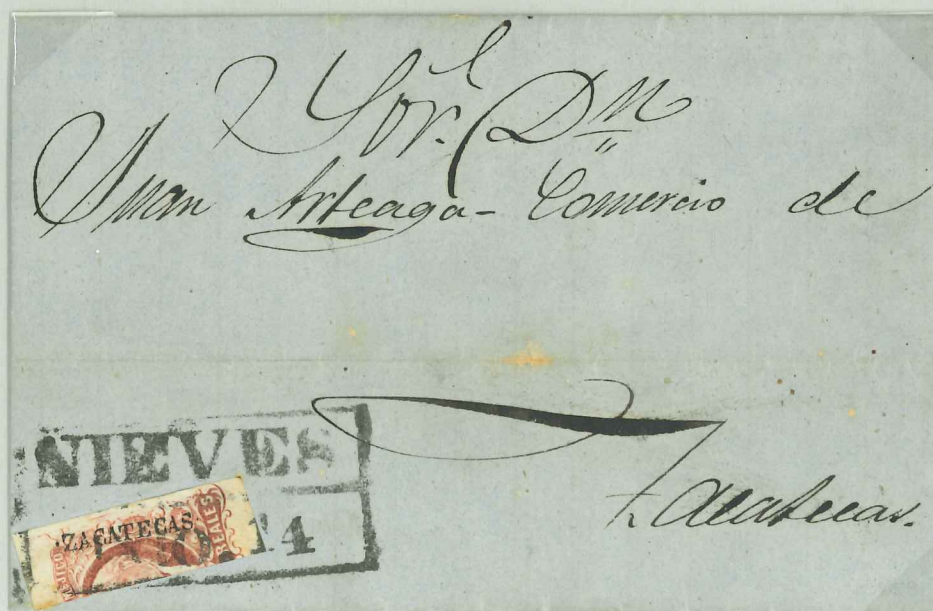 Sor. Dn
Juan Arteaga - Comercio de
Zacatecas.
NIEVES
14
ZACATECAS
REALES
MEJICO